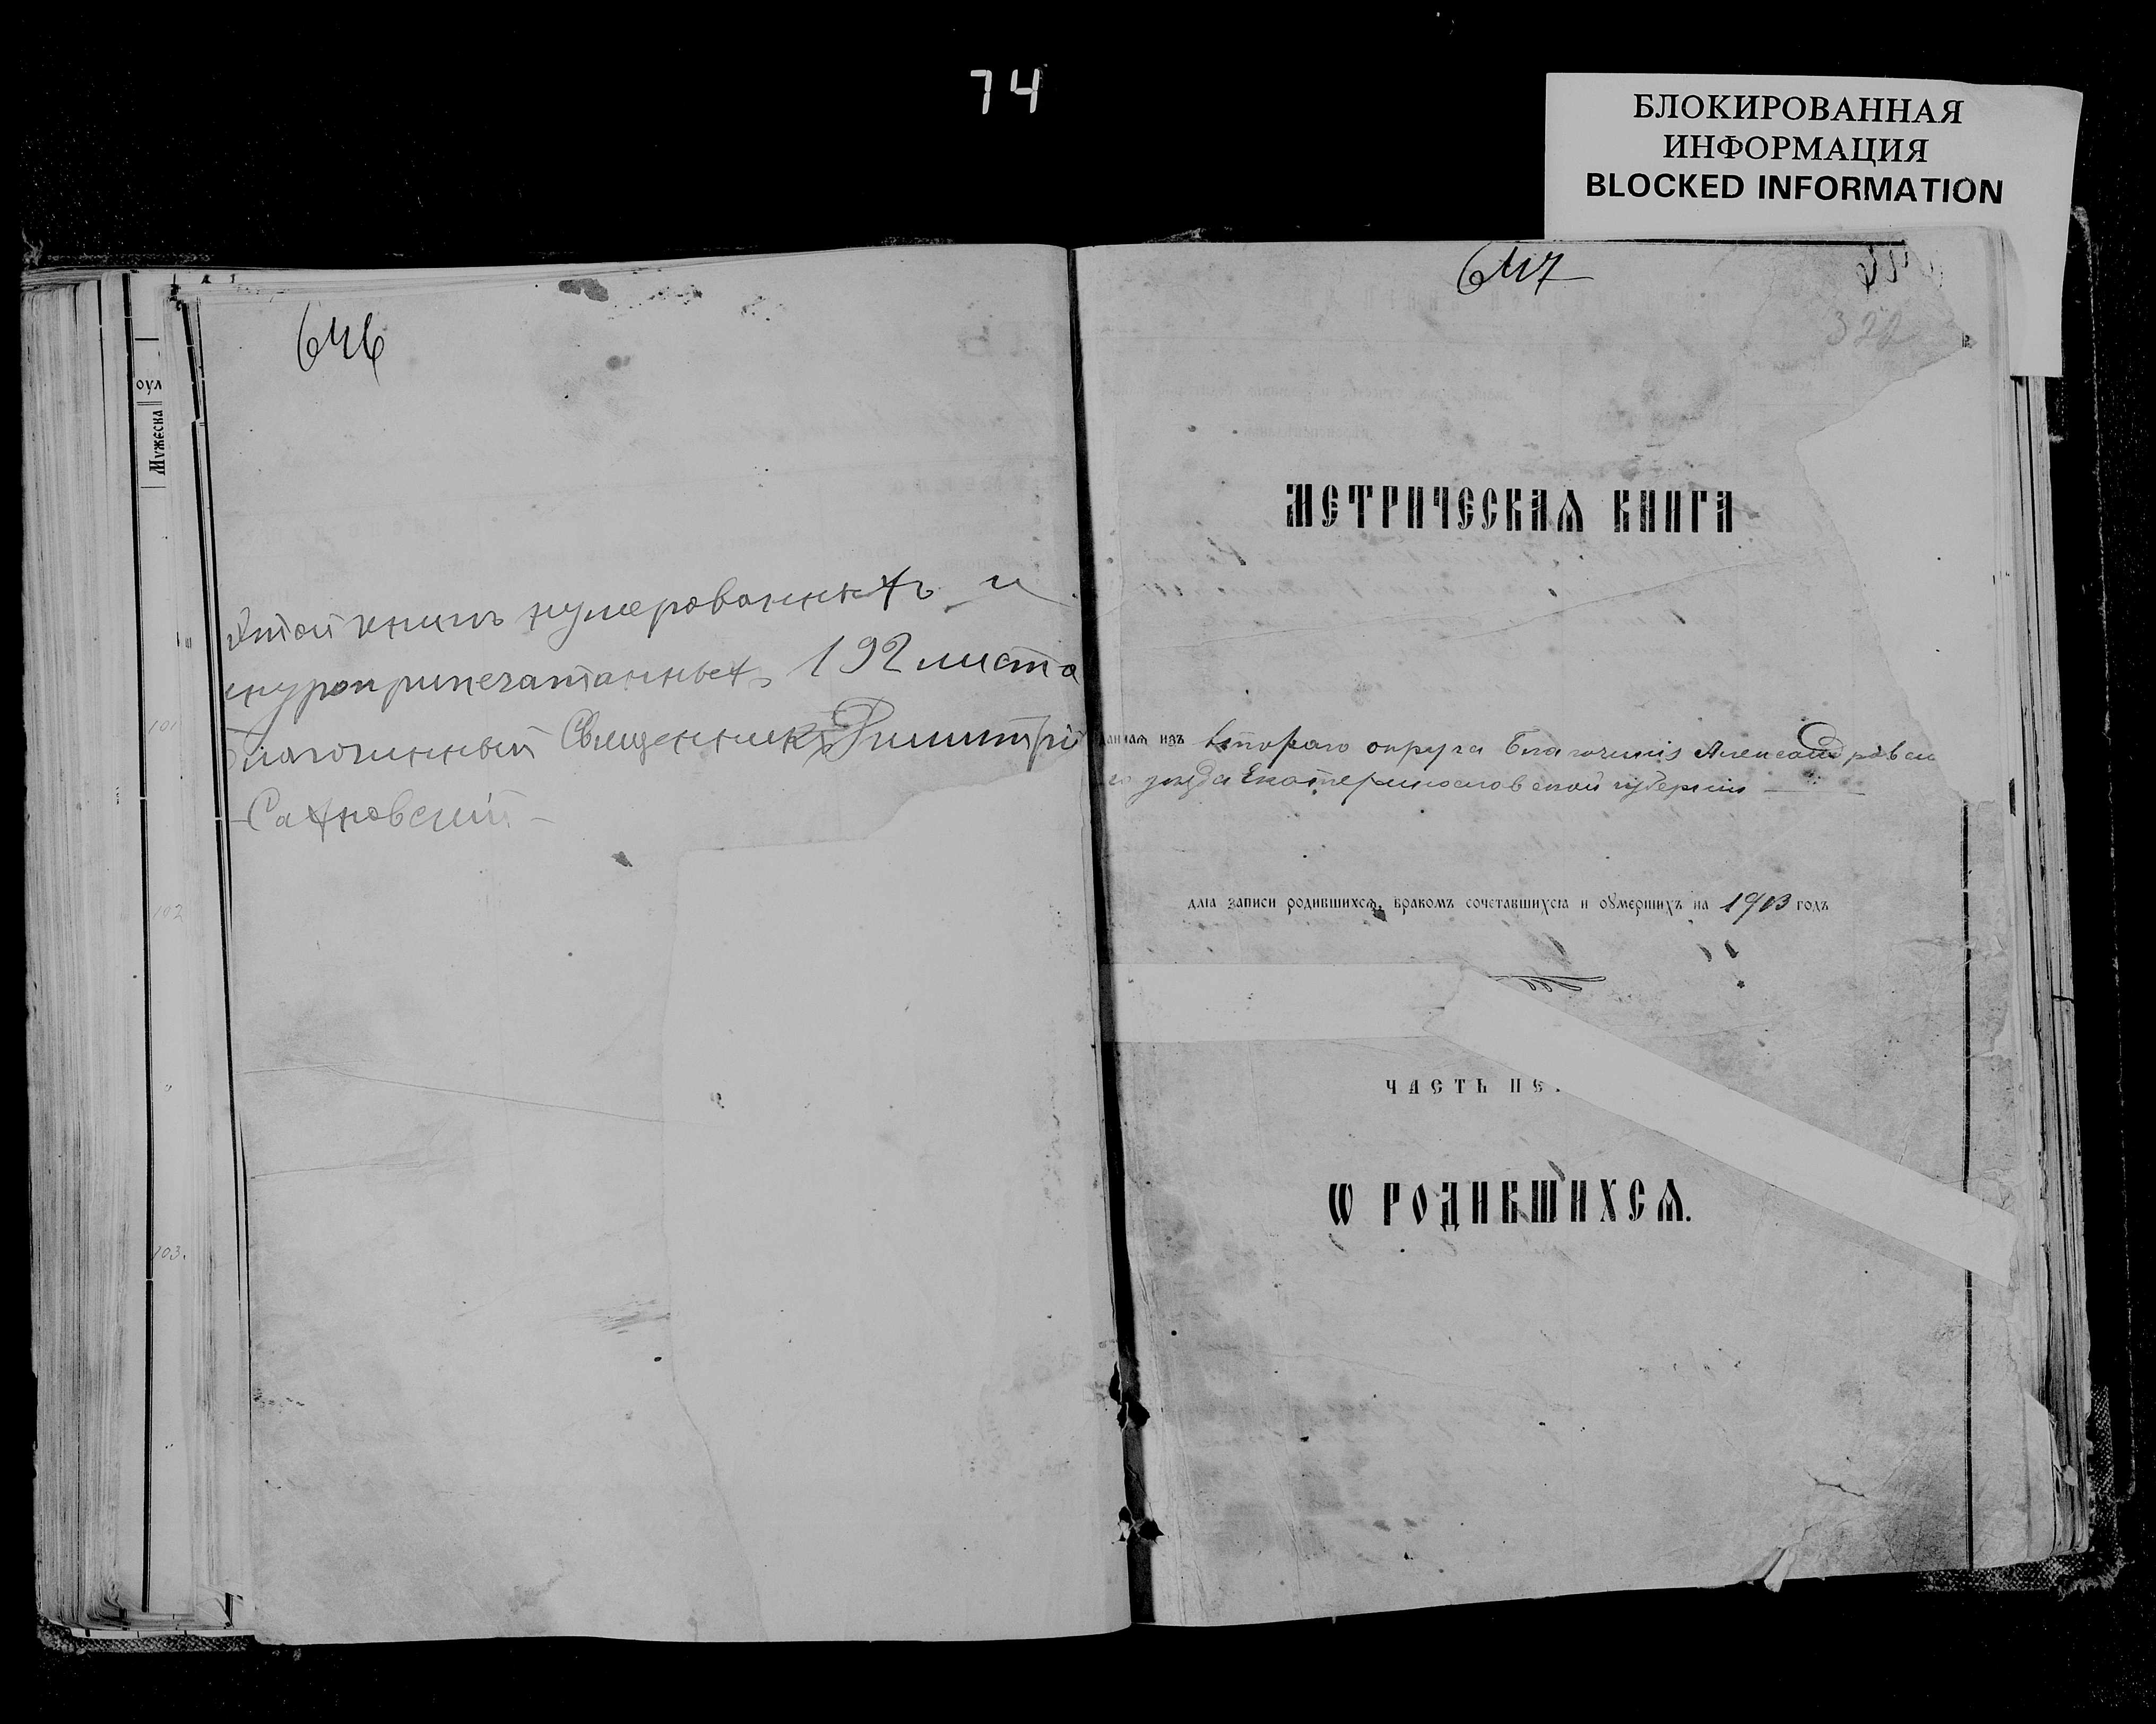 74
БЛОКИРОВАННАЯ
ИНФОРМАЦИЯ
BLOCKED INFORMATION
646
оул
Мужеска
этой книгѣ нумерованныхъ и
шнуроприпечатанныхъ 192 листа
Благочинный Священникъ Димитрій
Сахновскій
101
102
103.
647
322
МЕТРИЧЕСКАѦ КНИГА
данная изъ второго округа Благочинія Александровск
го уѣзда Екатеринославской губерніи
для записи родившихсѧ, бракомъ сочетавшихсѧ и оумершихъ на 1913 годъ
ЧАСТЬ ПЕ
Ѡ РОДИВШИХСѦ.